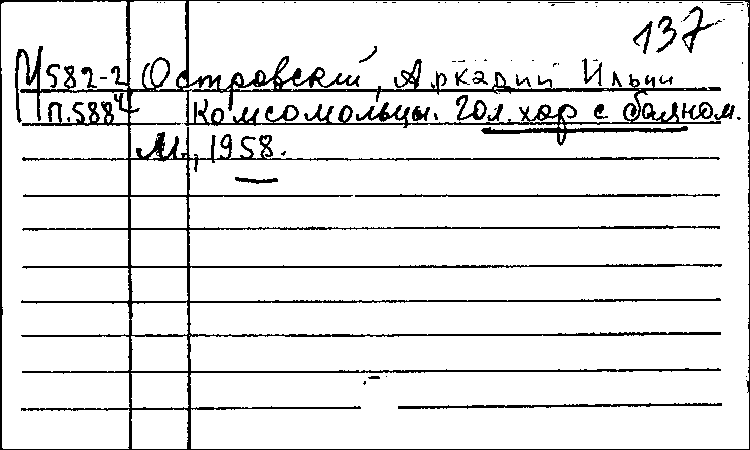 137
М582-2 Островский, Аркадий Ильич
П.588 Комсомольцы. Гол. хор с баяном.
М., 1958.